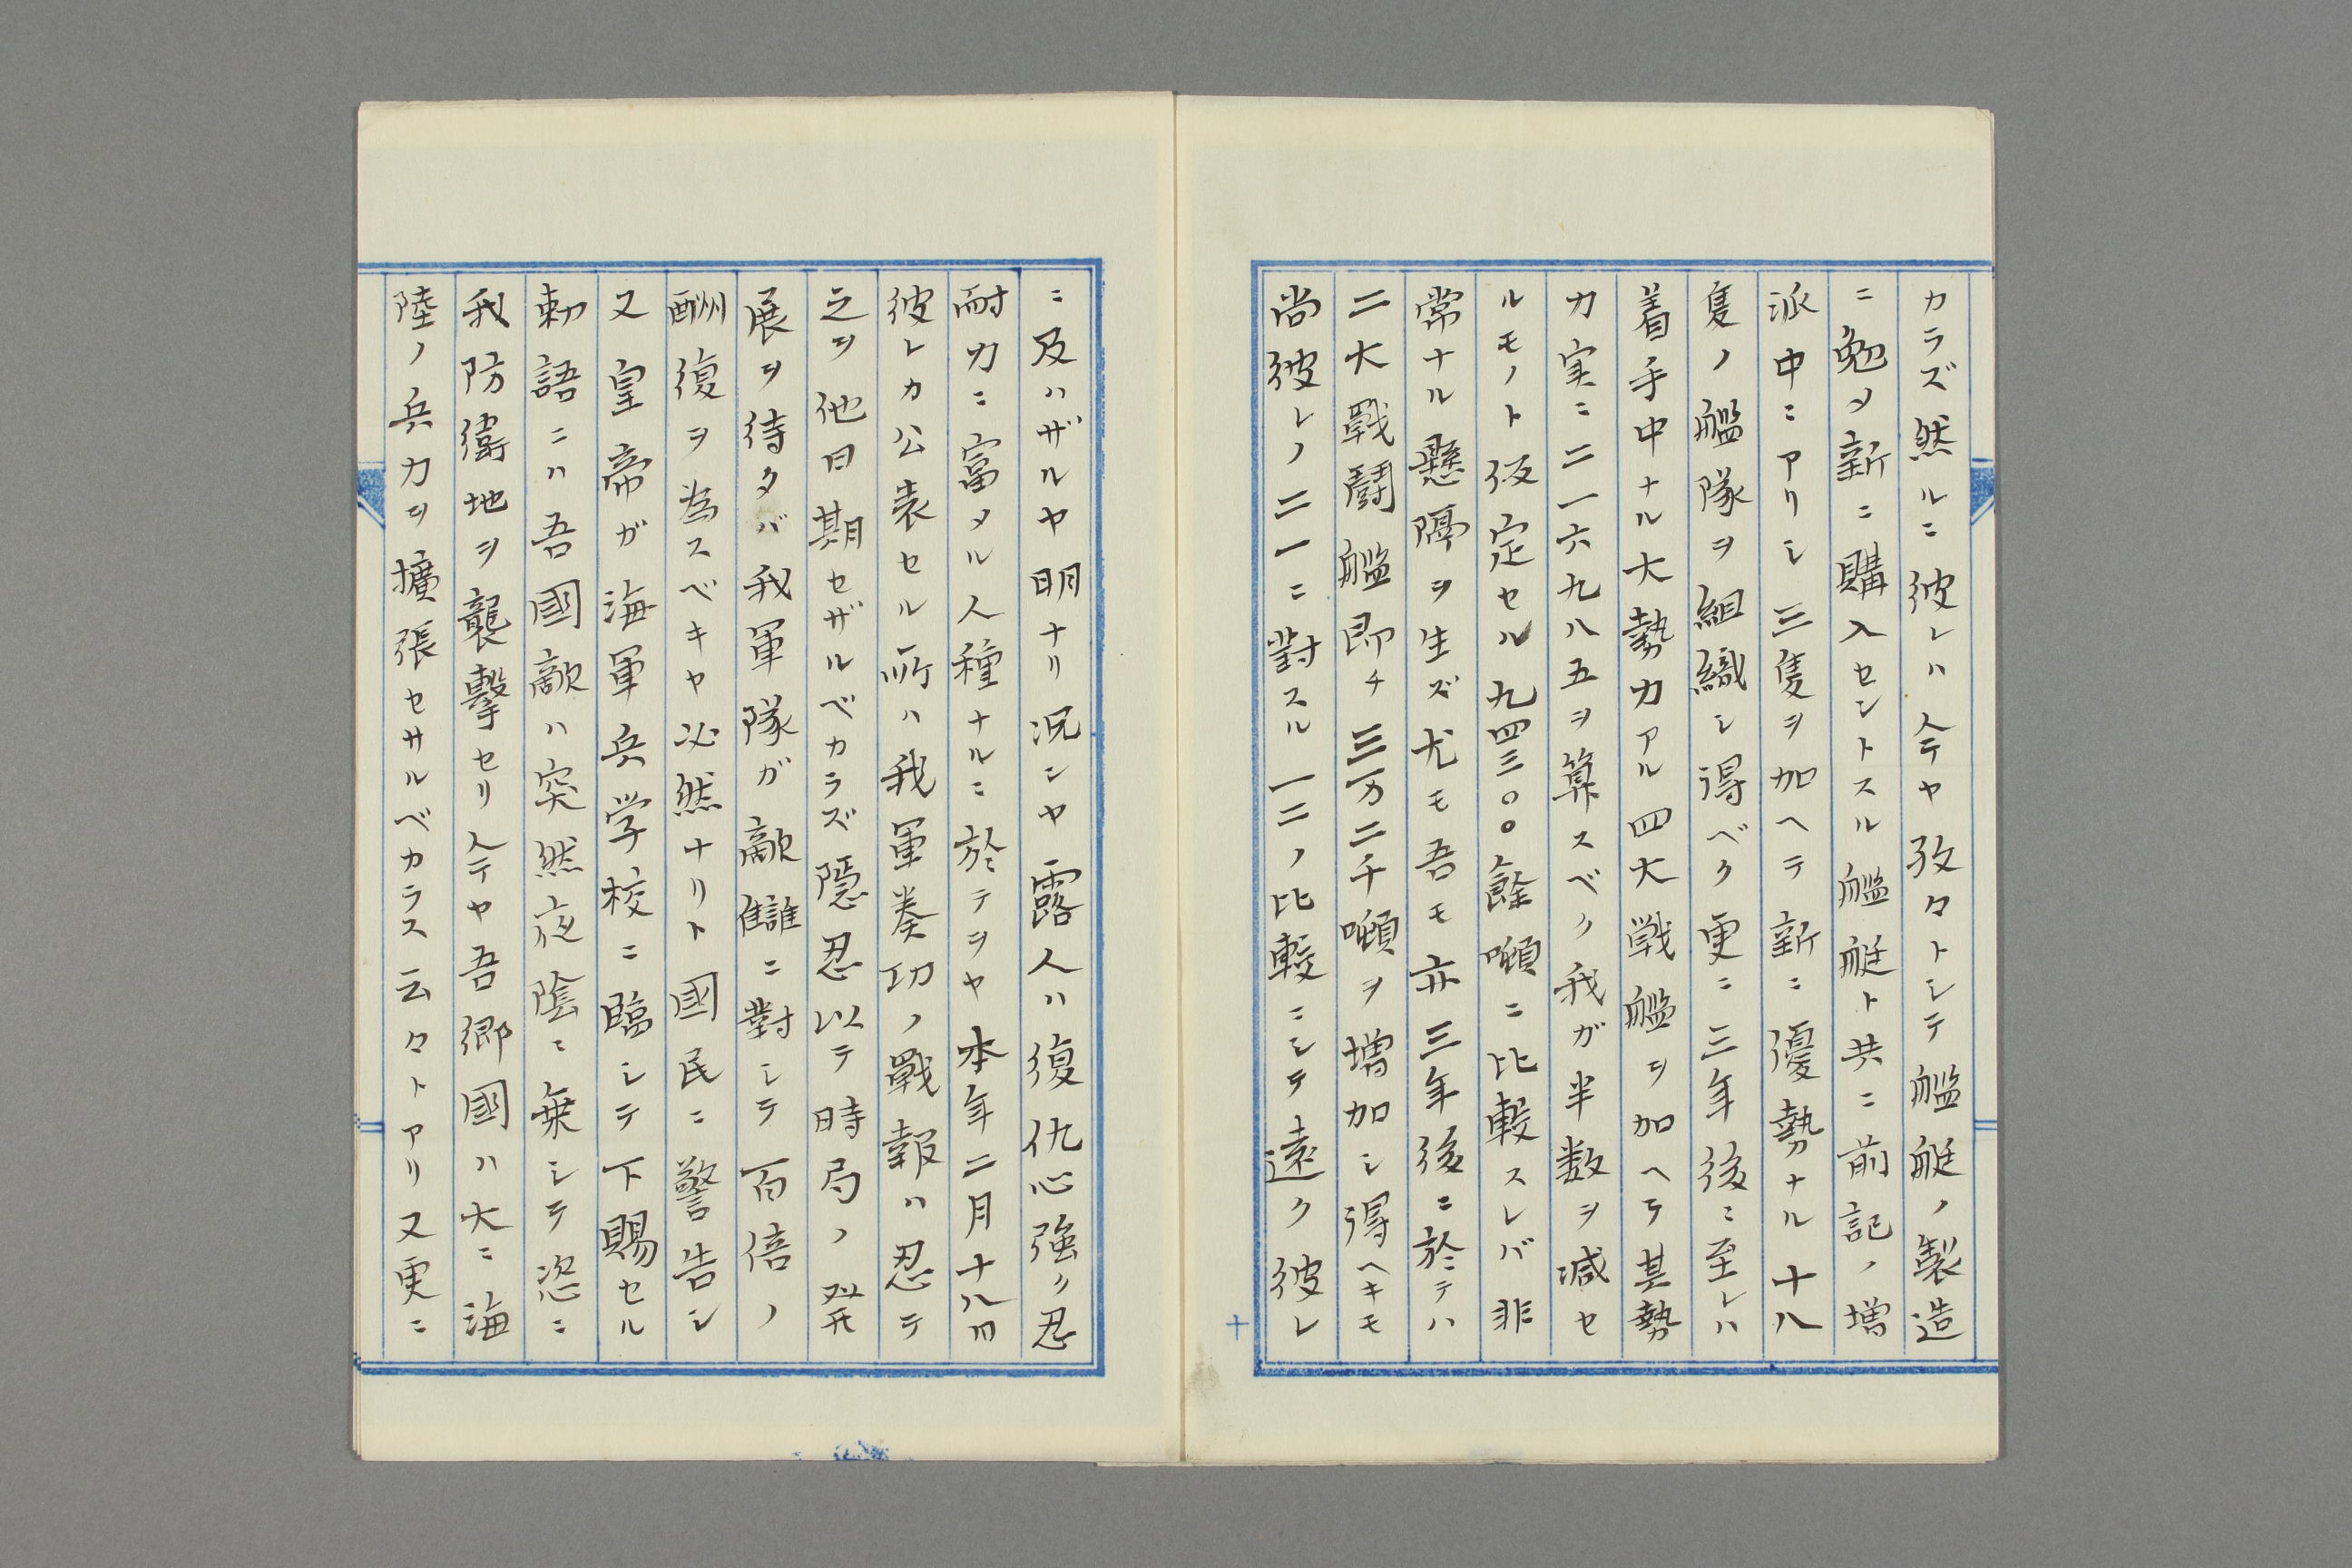 カラズ然ルニ彼レハ今ヤ孜々トシテ艦艇ノ製造
ニ勉メ新ニ購入セントスル艦艇ト共ニ前記ノ増
派中ニアリシ三隻ヲ加ヘテ新ニ優勢ナル十八
隻ノ艦隊ヲ組織シ得ベク更ニ三年後ニ至レハ
着手中ナル大勢力アル四大戦艦ヲ加ヘテ其勢
力実ニ二一六九八五ヲ算スベク我ガ半数ヲ减セ
ルモノト仮定セル九四三〇〇餘噸ニ比較スレバ非
常ナル懸隔ヲ生ズ尤モ吾モ亦三年後ニ於テハ
二大戰鬪艦即チ三万二千噸ヲ増加シ得ヘキモ
尚彼レノ二一ニ對スル一二ノ比較ニシテ遠ク彼レ
ニ及ハザルヤ明ナリ况ンヤ露人ハ復仇心強ク忍
耐力ニ富メル人種ナルニ於テヲヤ本年二月十八日
彼レカ公表セル所ハ我軍奏功ノ戰報ハ忍テ
之ヲ他日期セザルベカラズ隱忍以テ時局ノ発
展ヲ待タバ我軍隊ガ敵讎ニ對シテ百倍ノ
酬復ヲ為スベキヤ必然ナリト國民ニ警告シ
又皇帝ガ海軍兵学校ニ臨シテ下賜セル
勅語ニハ吾國敵ハ突然夜陰ニ乗シテ恣ニ
我防衛地ヲ襲擊セリ今ヤ吾郷國ハ大ニ海
陸ノ兵力ヲ擴張セサルベカラス云々トアリ又更ニ